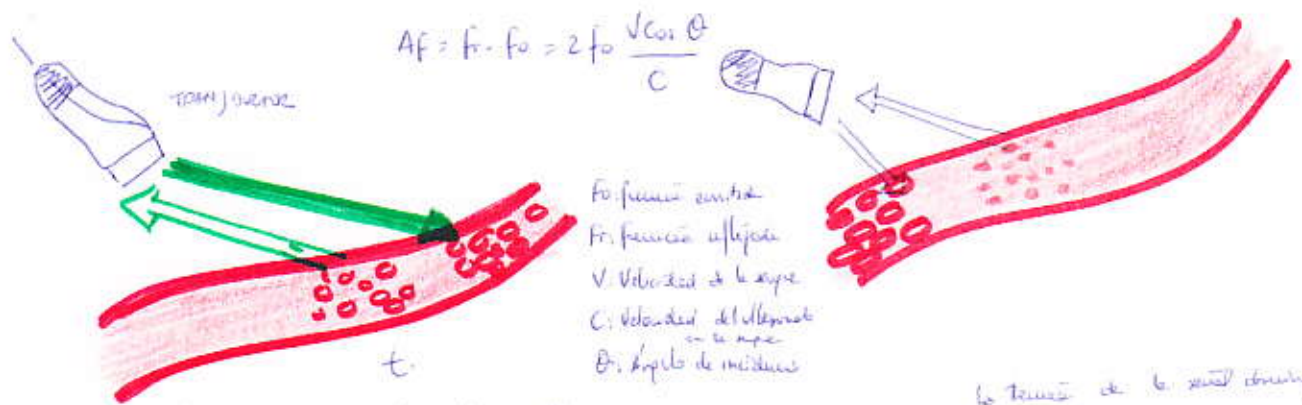 Δf = fr - fo = 2 fo V cos θ / C
TRANSDUCTOR
Fo: frecuencia emitida
Fr: frecuencia reflejada
V: Velocidad de la sangre
C: Velocidad del ultrasonido
en la sangre
θ: Ángulo de incidencia
t.
la de la señal